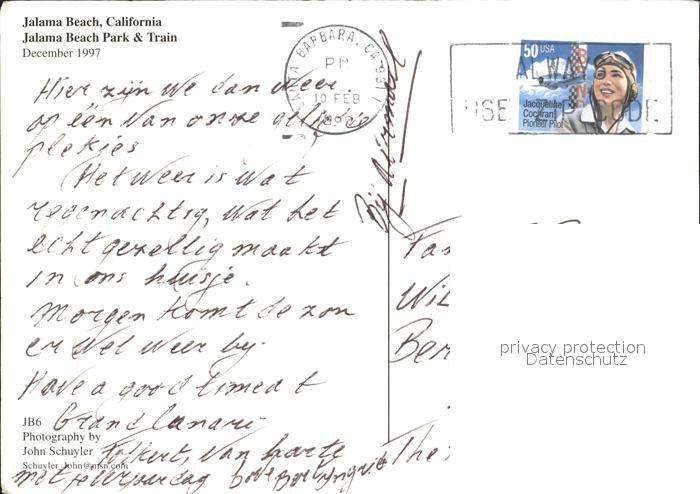 Jalama Beach, California
Jalama Beach Park & Train
December 1997
Hier zijn we dan weer
op één van onze
plekjes
Het weer is wat
regenachtig, wat het
echt gezellig maakt
in ons huisje.
Morgen komt de zon
er wel weer by.
Have a good time at
Grand Canari
van harte
met je verjaardag
JB6
Photography by
John Schuyler
Schuyler_John@msn.com
SANTA BARBARA, CA 931
PM
10 FEB
50 USA
Jacqueline
Cochran
Pioneer Pilot
ALWAYS
USE ZIP CODE
Fa
Wil
Ber
The
privacy protection
Datenschutz